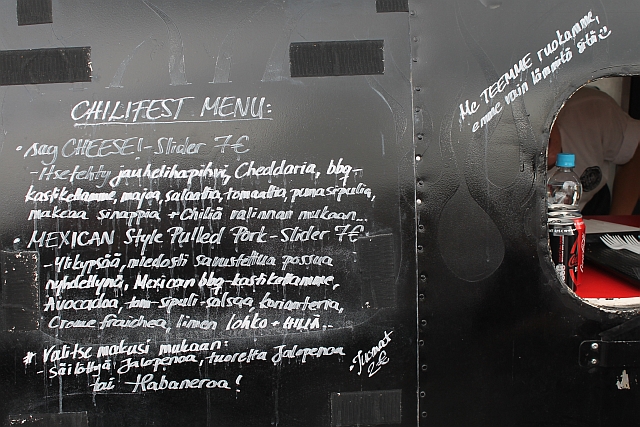 CHILIFEST MENU:
• Say CHEESE!!-Slider 7€
-Itsetehty jauhelihapihvi, Cheddaria, bbq-
kastikettamme, majoa, salaattia, tomaattia, punasipulia,
makeaa sinappia + Chiliä valinnan mukaan...
• MEXICAN Style Pulled Pork-Slider 7€
-Ylikypsää, miedosti savustettua possua
nyhdettynä, Mexican bbq-kastikettamme,
Avocadoa, tom-sipuli-salsaa korianteria,
Creme fraichea, limen lohko + CHILIÄ..
* Valitse makusi mukaan:
- säilöttyä Jalopenoa, tuoretta Jalopenoa
tai Habaneroa!
• Juomat
2€
Me TEEMME ruokamme,
emme vain lämmitä sitä